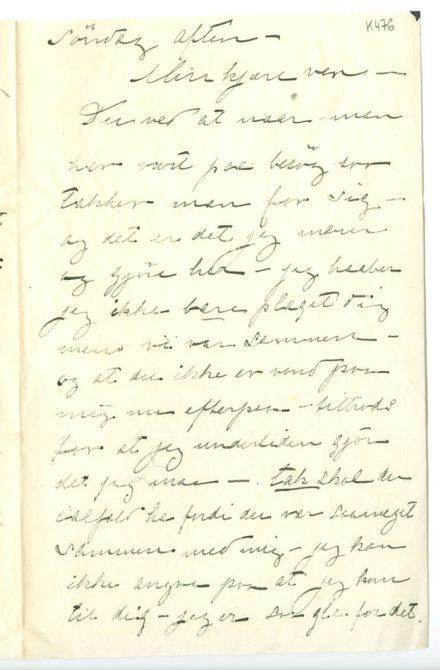 K476
Söndag aften –
Min kjære ven –
Du ved at naar man
har vært paa besög saa
takker man for sig –
og det er det jeg mener
og gjöre her – jeg haaber
jeg ikke bare plaget dig
mens vi var sammen –
og at du ikke er vond paa
mig nu efterpaa – tiltrods
for at jeg undertiden gjör
det jeg maa –. tak skal du
ialfald ha fordi du var saameget
sammen med mig – jeg kan
ikke angre paa at jeg kom
til dig – jeg er saa gla for det.